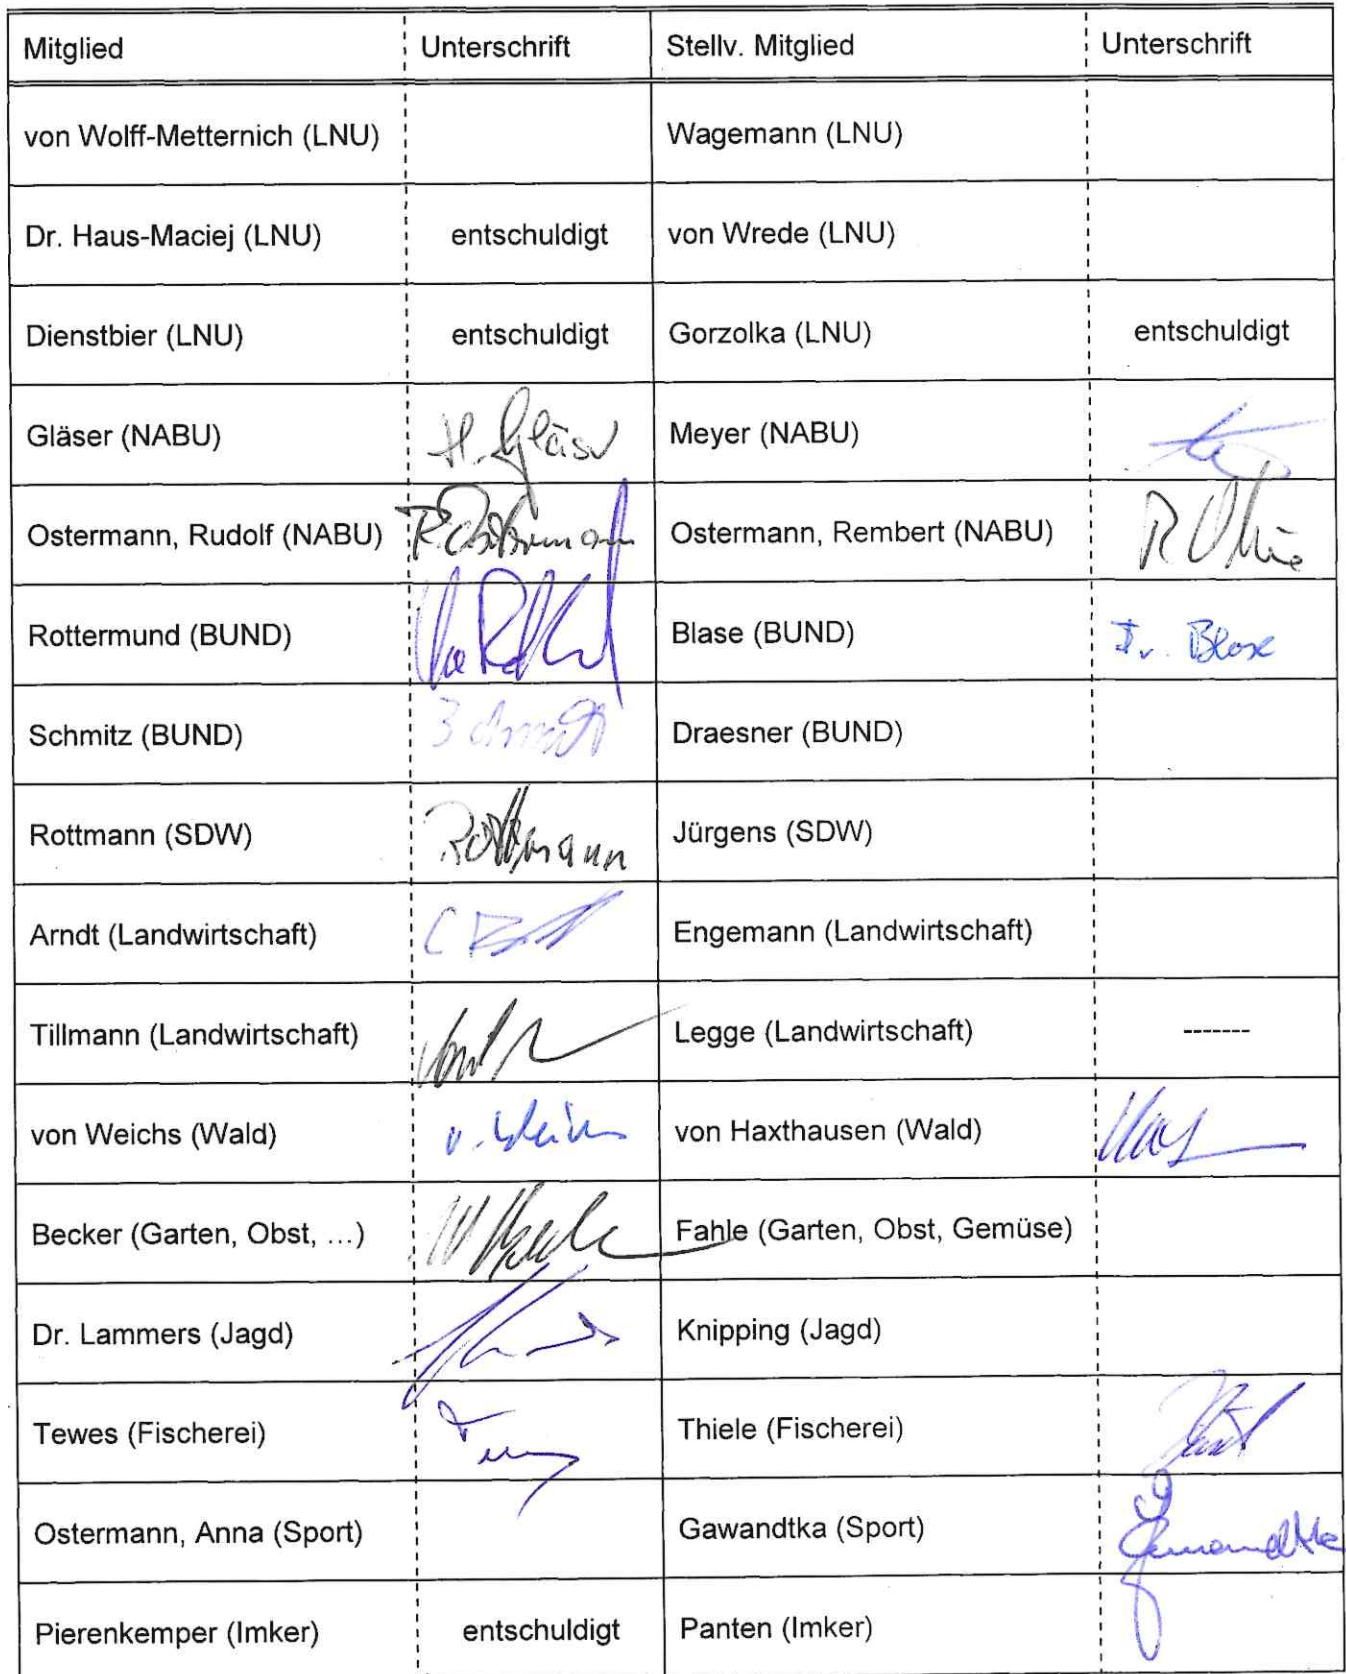 Mitglied Unterschrift Stellv. Mitglied Unterschrift
von Wolff-Metternich (LNU) Wagemann (LNU)
Dr. Haus-Maciej (LNU) entschuldigt von Wrede (LNU)
Dienstbier (LNU) entschuldigt Gorzolka (LNU) entschuldigt
Gläser (NABU) H. Gläser Meyer (NABU)
Ostermann, Rudolf (NABU) R. Ostermann Ostermann, Rembert (NABU)
Rottermund (BUND) Blase (BUND)
Schmitz (BUND) Draesner (BUND)
Rottmann (SDW) Rottmann Jürgens (SDW)
Arndt (Landwirtschaft) Engemann (Landwirtschaft)
Tillmann (Landwirtschaft) Legge (Landwirtschaft) -------
von Weichs (Wald) v. Weichs von Haxthausen (Wald)
Becker (Garten, Obst, ...) Fahle (Garten, Obst, Gemüse)
Dr. Lammers (Jagd) Knipping (Jagd)
Tewes (Fischerei) Thiele (Fischerei)
Ostermann, Anna (Sport) Gawandtka (Sport) Gawandtka
Pierenkemper (Imker) entschuldigt Panten (Imker)